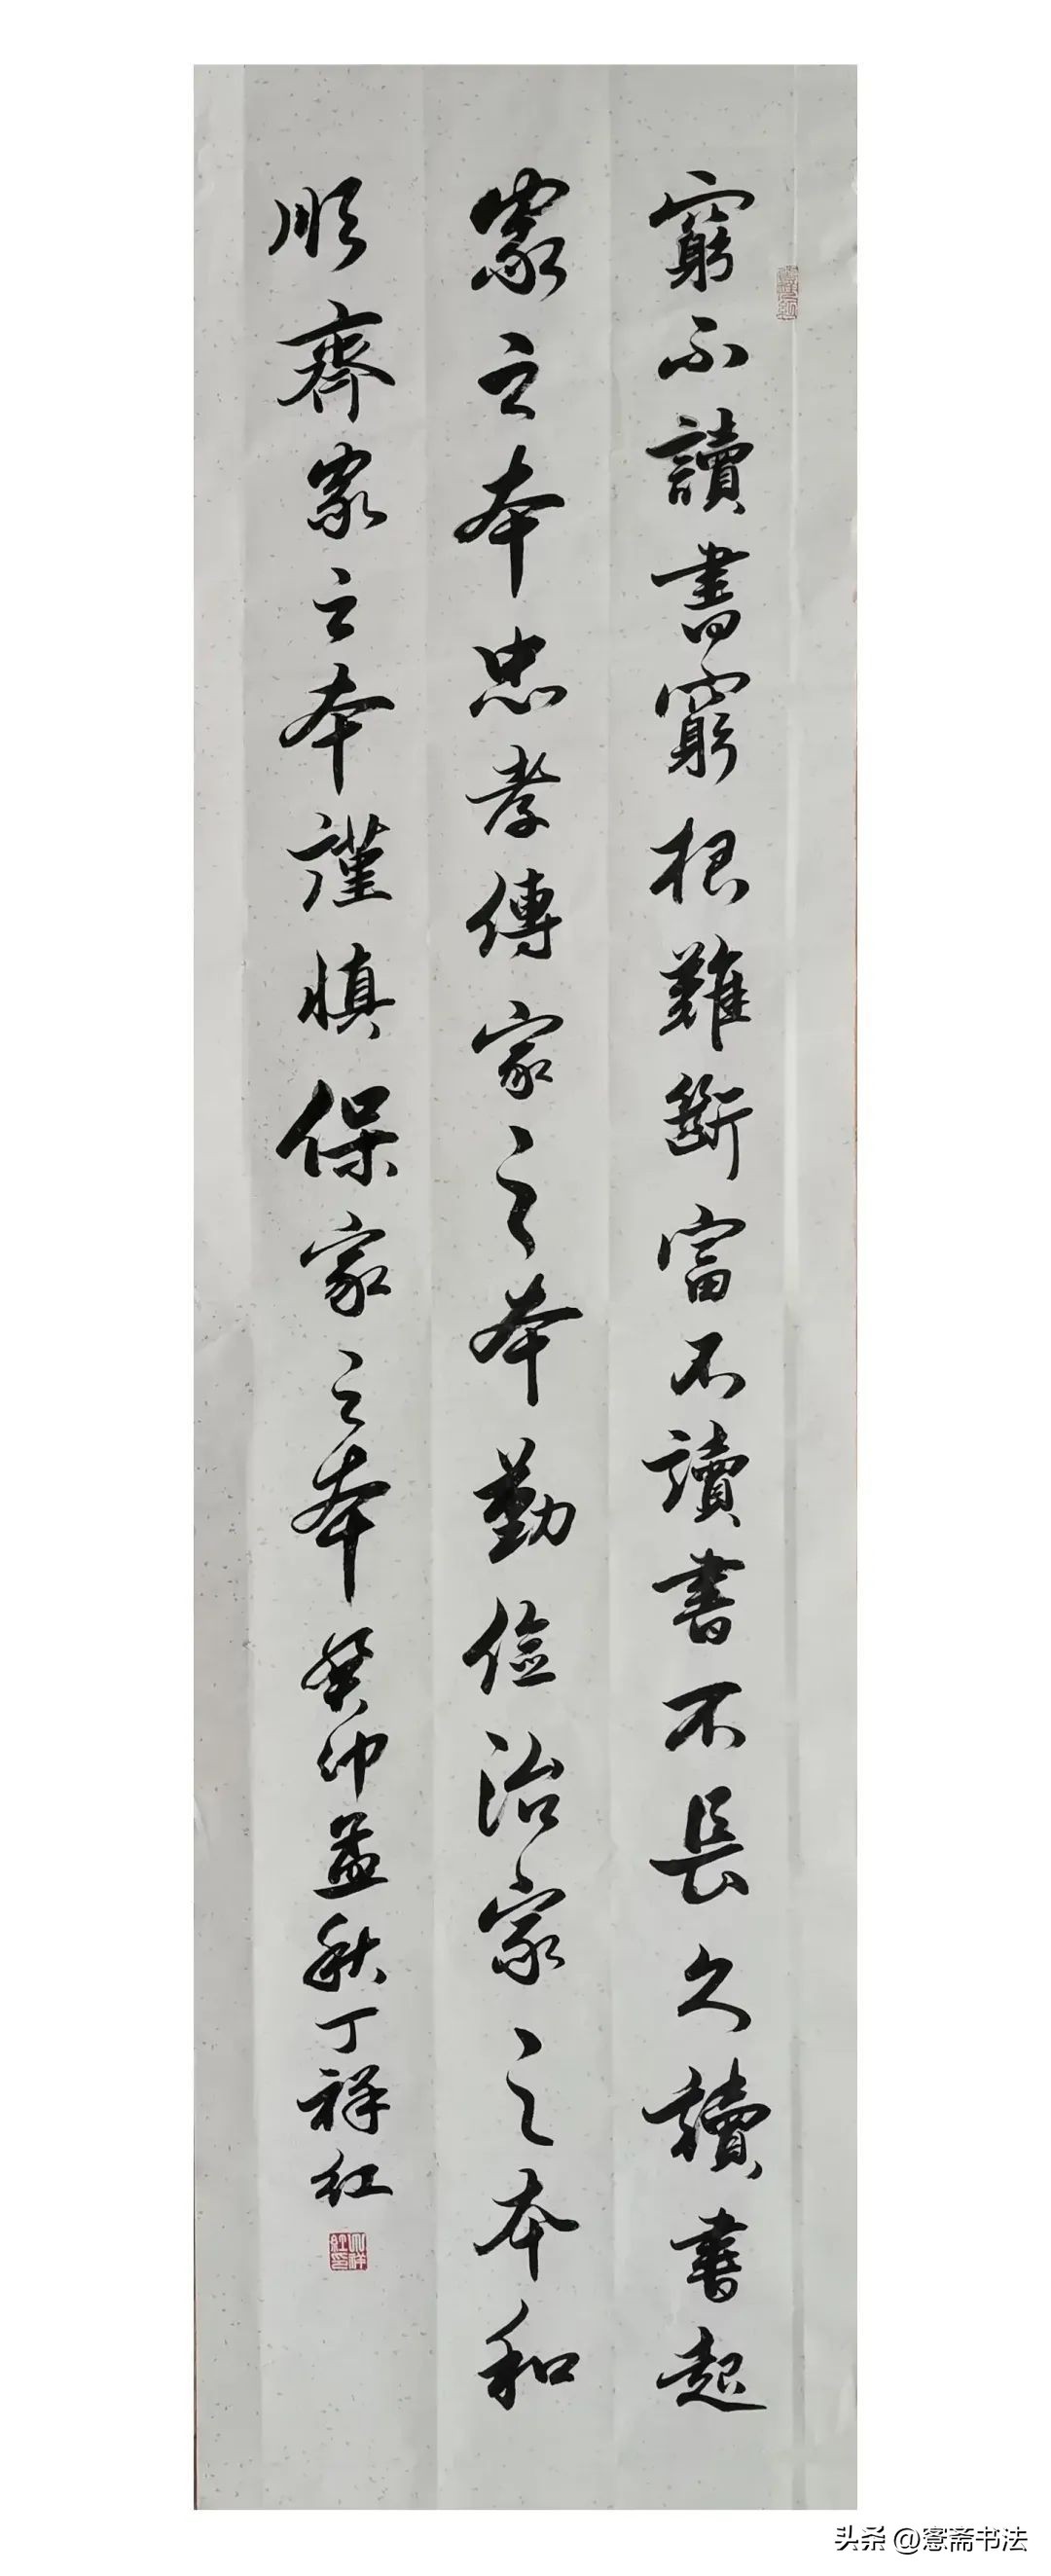 窮不讀書窮根難斷富不讀書不長久讀書起
家之本忠孝傳家之本勤儉治家之本和
順齊家之本謹慎保家之本癸卯孟秋丁祥紅
头条 @愙斋书法